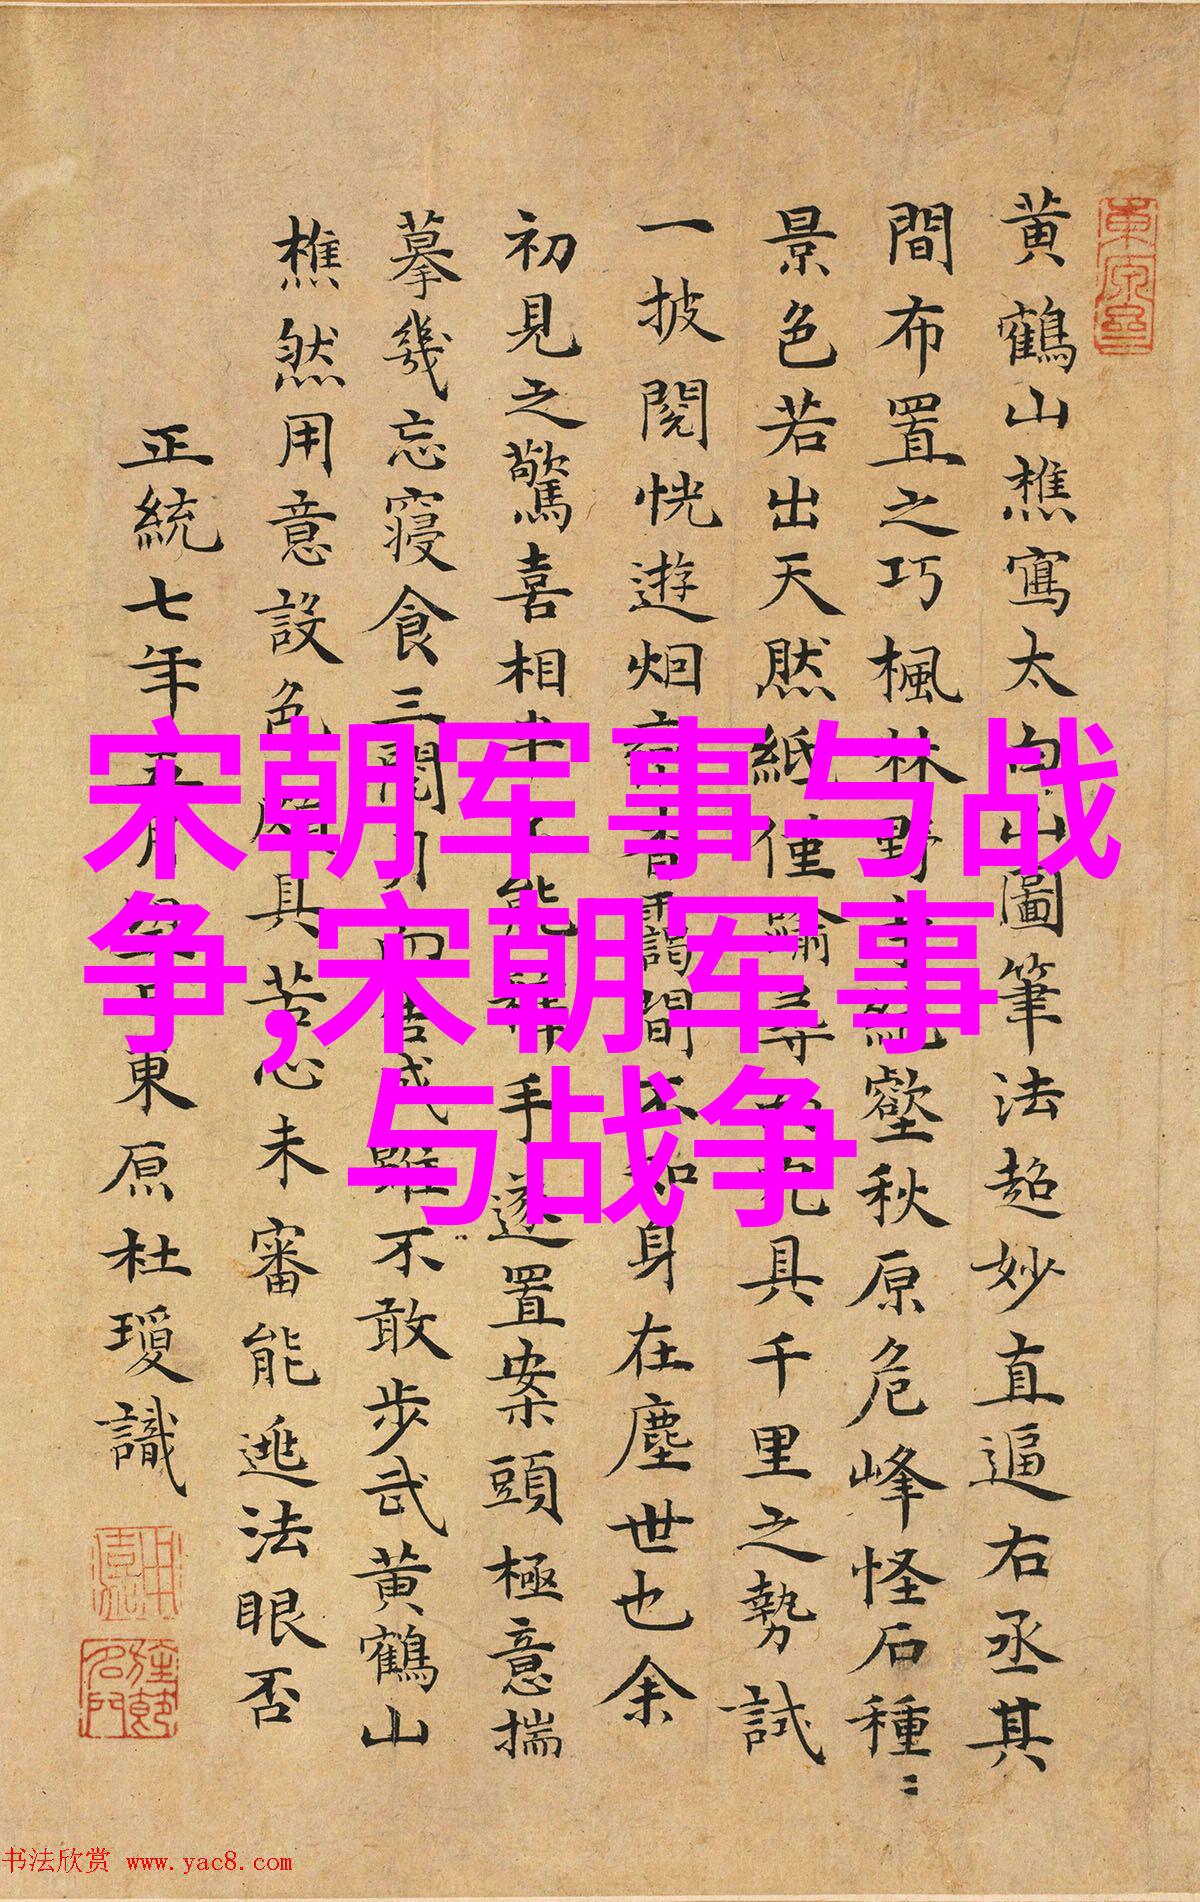 黄鶴山樵寫太白山圖筆法超妙直逼右丞其
間布置之巧楓林野 絶壑秋原危峰怪石種:
景色若出天然紙僅 尋 具千里之勢試
一披閱恍遊 間不知身在塵世也余
初見之驚喜相半 能釋手遂置案頭極意揣
摹幾忘寝食三閱月而 成雖不敢步武黄鶴山
樵然用意設色頗具苦心未審能逃法眼否
正統七年五月 東原杜瓊識
宋朝军事与战
争,宋朝军事
与战争
书法欣赏 www.yac8.com